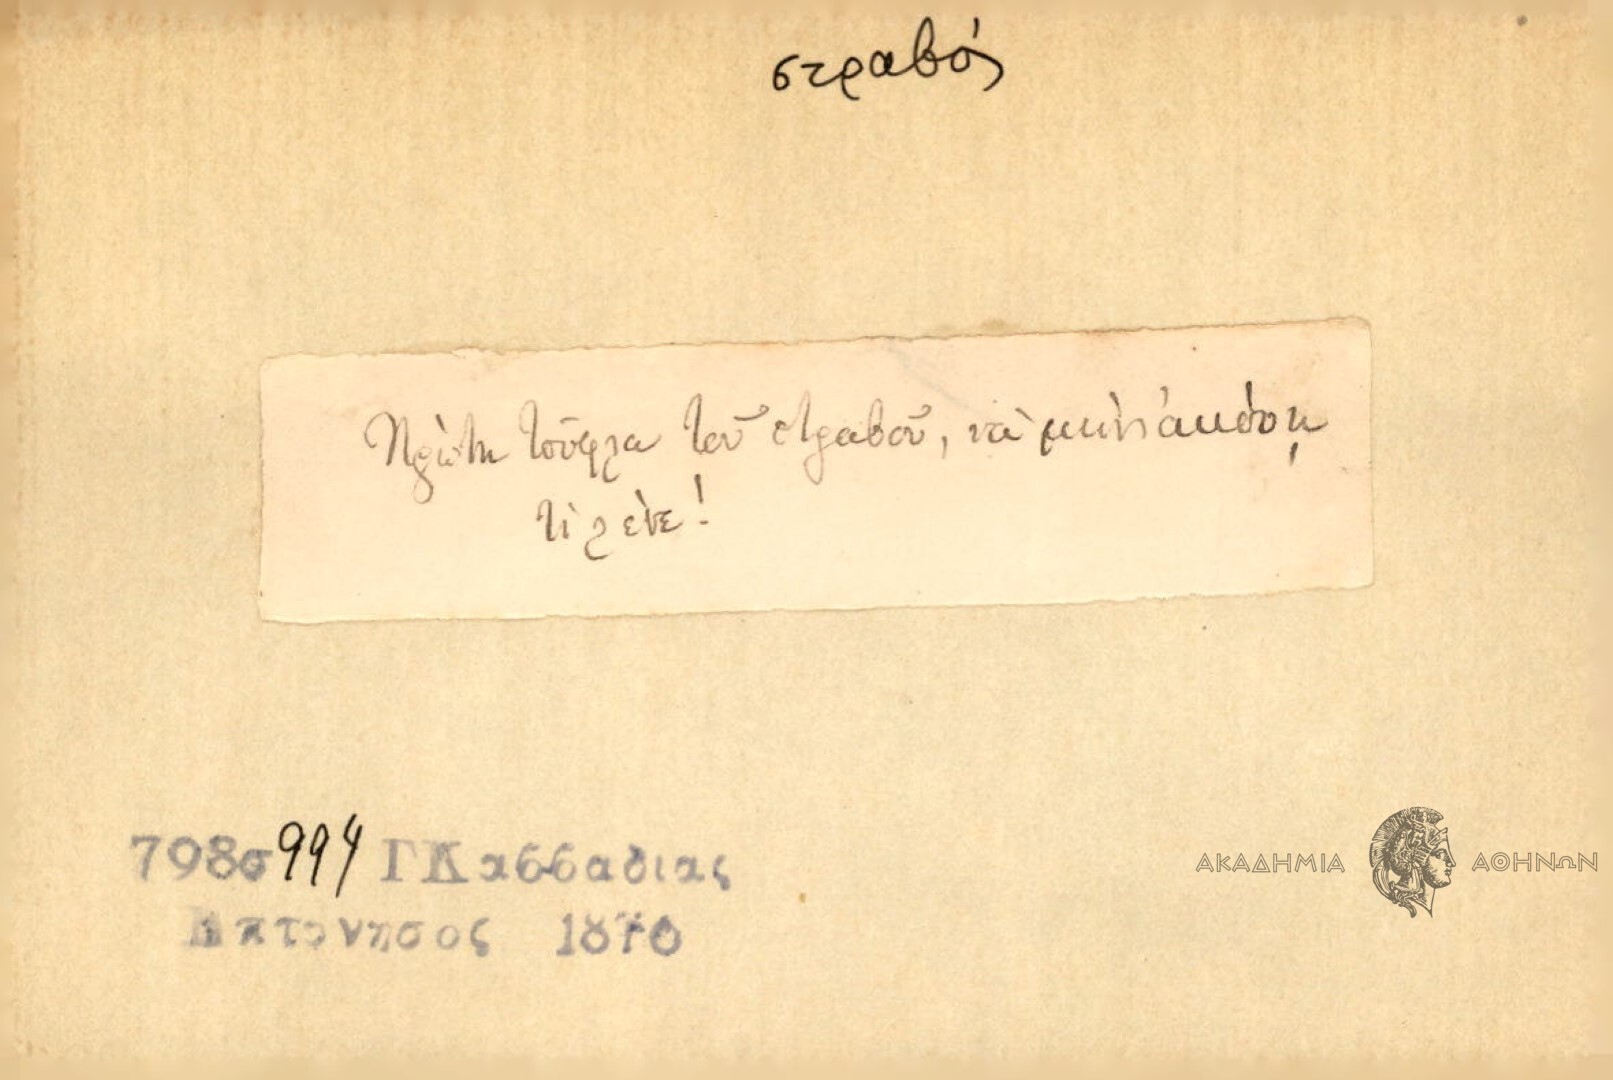 στραβός
Πρώτη τούφλα τοῦ στραβοῦ, νὰ μὴν ἀκούῃ
τί λένε!
798σ 994 ΓΚασσαδιας
Επτανησος 1876
ΑΚΑΔΗΜΙΑ ΑΘΗΝΩΝ